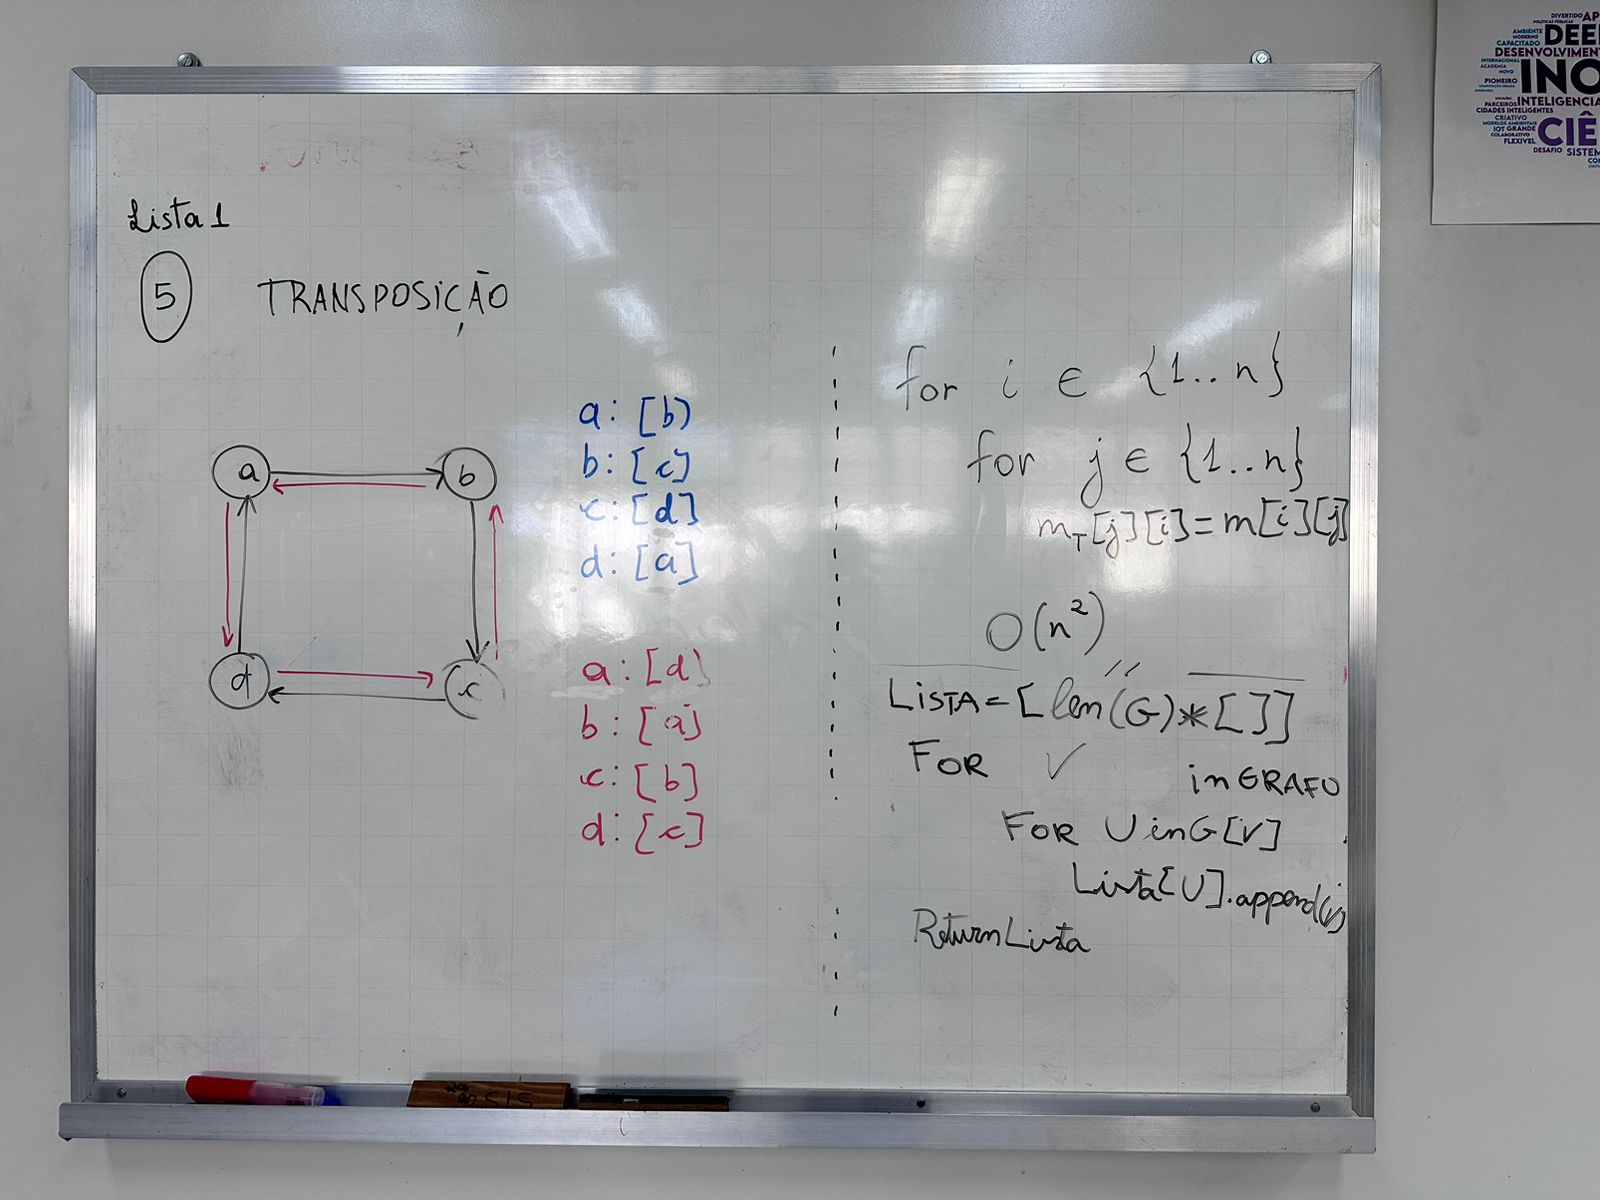 Lista 1
5 TRANSPOSIÇÃO
a
b
d
c
a: [b)
b: [c]
c: [d]
d: [a]
a: [d]
b: [a]
c: [b]
d: [c]
for i ∈ {1..n}
for j ∈ {1..n}
m_T[j][i]=m[i][j]
O(n²)
LISTA=[len(G)*[]]
FOR V in GRAFO
FOR U in G[V]
Lista[U].append(v)
Return Lista
DIVERTIDO
POLÍTICAS PÚBLICAS
AMBIENTE
MODERNO
CAPACITADO
DESENVOLVIMENT
INTERNACIONAL
ACADEMIA
NOVO
INO
PIONEIRO
INTELIGENCIA
PARCEIROS
CIDADES INTELIGENTES
CRIATIVO
MODELOS AMBIENTAIS
CIÊ
IOT GRANDE
COLABORATIVO
FLEXIVEL
DESAFIO
SISTEM